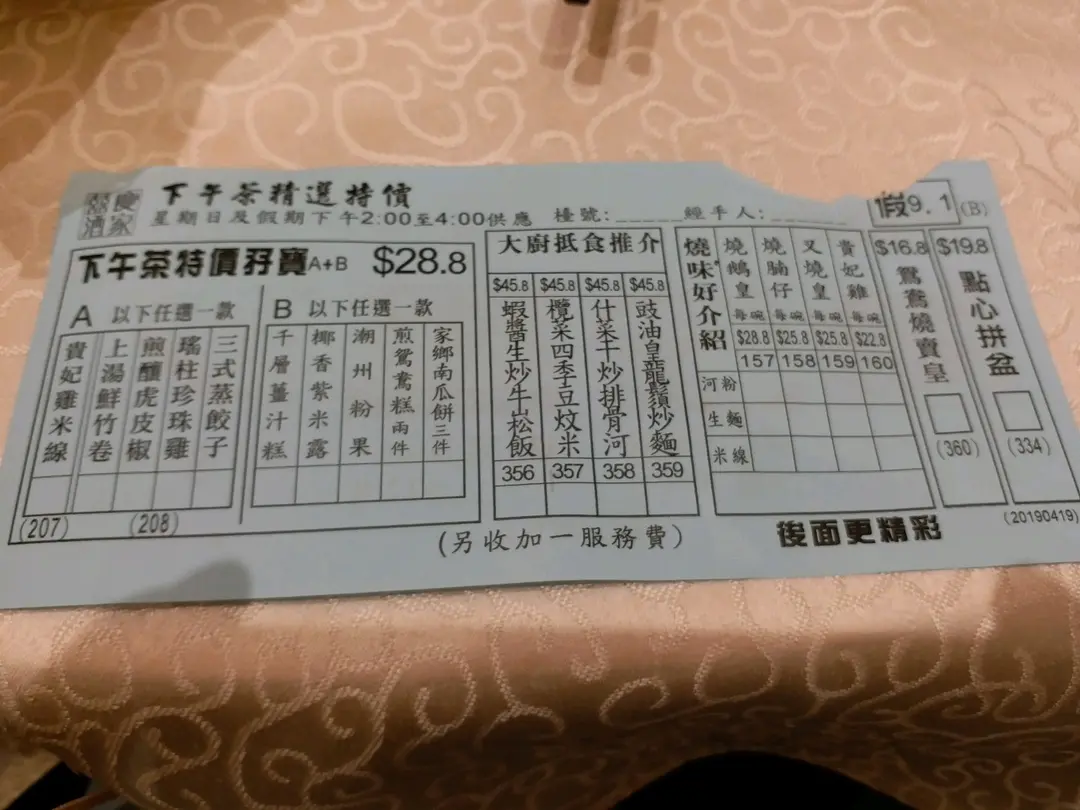 慶家
酒
下午茶精選特價
星期日及假期下午2:00至4:00供應 檯號:______ 經手人:______
假9.1(B)
下午茶特價孖寶A+B $28.8
A 以下任選一款
貴妃雞米線
上湯鮮竹卷
煎釀虎皮椒
瑤柱珍珠雞
三式蒸餃子
(207)
(208)
B 以下任選一款
千層薑汁糕
椰香紫米露
潮州粉果
煎鴛鴦糕兩件
家鄉南瓜餅三件
大廚抵食推介
$45.8 $45.8 $45.8 $45.8
蝦醬生炒牛崧飯
欖菜四季豆炆米
什菜干炒排骨河
豉油皇龍鬚炒麵
356 357 358 359
燒味好介紹
燒鵝皇 每碗
燒腩仔 每碗
叉燒皇 每碗
貴妃雞 每碗
$28.8 $25.8 $25.8 $22.8
157 158 159 160
河粉
生麵
米線
$16.8
鴛鴦燒賣皇
(360)
$19.8
點心拼盆
(334)
(另收加一服務費)
後面更精彩
(20190419)